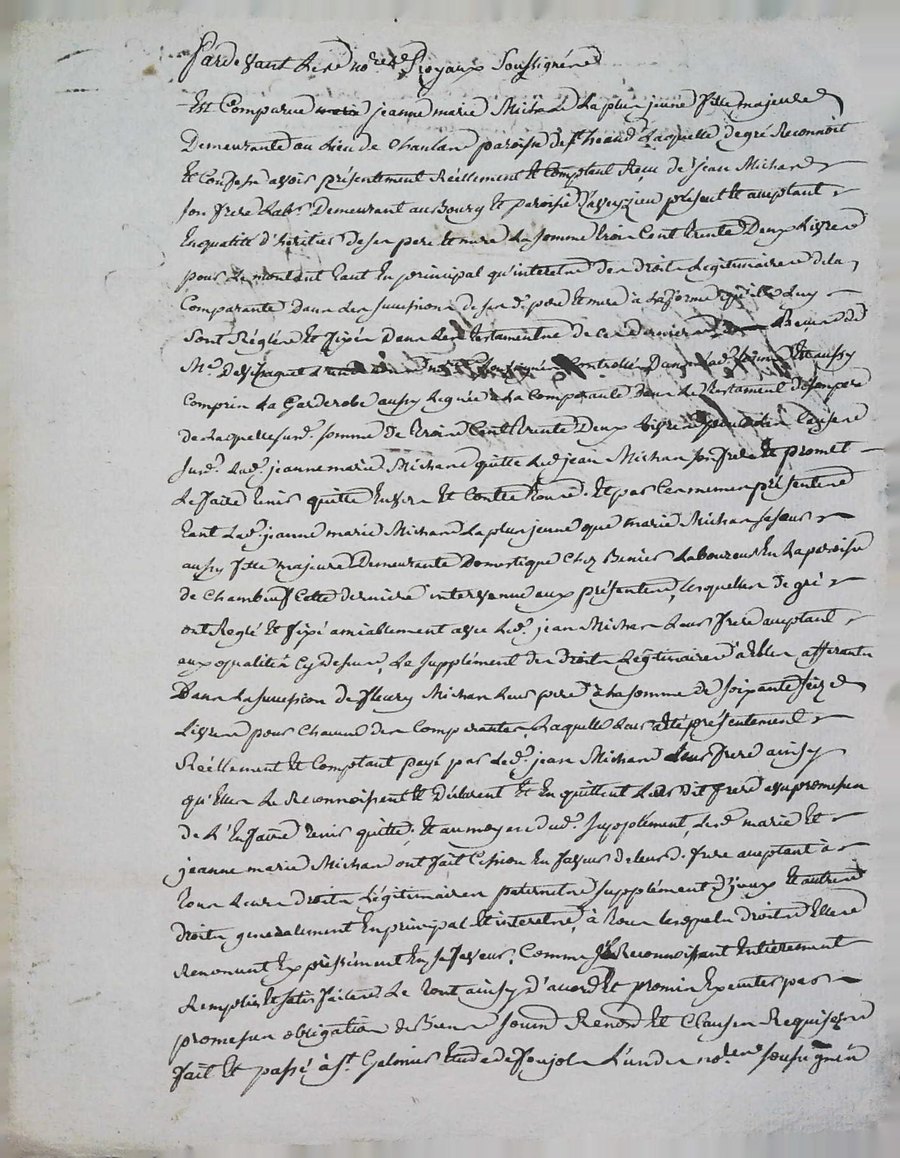 Pardevant Les no.res Royaux Soussignés
Est Comparue jeanne marie Michard La plus jeune fille majeure
Demeurante au Lieu de Chanlan paroisse de St heand Laquelle de gré Reconnoit
Et Confesse avoir présentement Réellement Et Comptant Reçu de jean Michard
son frere Lab.r Demeurant au Bourg Et paroisse d'aveyzieu présent Et acceptant
En qualité d'héritier de ses pere Et mere La somme trois Cent trente Deux Livres
pour Le montant tant En principal qu'interets des Droits Legitimaires de la
Comparante Dans Les successions de ses d. pere Et mere à La forme qu'ils Luy
sont Réglés Et fixés Dans Les testaments de ces derniers Reçus de
M.e Controllé Dans Lad. somme Est aussy
Compris La Garderobe aussy Leguée à La Comparante Dans Le testament de son pere
de Laquelle susd. somme de trois Cent trente Deux Livres pour Les Causes
susd. Lad. jeanne marie Michard quitte Led. jean Michard son frere Et promet
Le faire tenir quitte Envers Et Contre tous. Et par Ces memes présentes
tant Lad. jeanne marie Michard La plus jeune que marie Michard sa sœur
aussy fille majeure Demeurante Domestique Chez Benier Laboureur En La paroisse
de Chambœuf Cette derniere intervenue aux présentes, Lesquelles de gré
ont Reglé Et fixé amiablement avec Led. jean Michard Leur frere acceptant
aux qualités Cy dessus, Le supplément des Droits Légitimaires à Elles afferants
Dans La succession de fleury Michard Leur pere à La somme de soixante seize
Livres pour Chacune des Comparantes, Laquelle Leur a été présentement
Réellement Et Comptant payé par Led. jean Michard Leur frere ainsy
qu'Elles Le Reconnoissent Et déclarent Et En quittent Leur dit frere avec promesse
de L'En faire tenir quitte, Et au moyen dud. supplément, Lesd. marie Et
jeanne marie Michard ont fait Cession En faveur de Leurd. frere acceptant à
tous Leurs droits Légitimaires paternels supplément d'jceux Et autres
droits generalement En principal Et interets, à tous Lesquels droits Elles
Renoncent Expressément En sa faveur, Comme se Reconnoissant Entièrement
Remplies Et satisfaites Le tout ainsy d'accord Et promis Executer par
promesse obligation de Biens soumis Renon Et Clauses Requises
fait Et passé à St. Galmier Etude de L'un des no.res soussignés